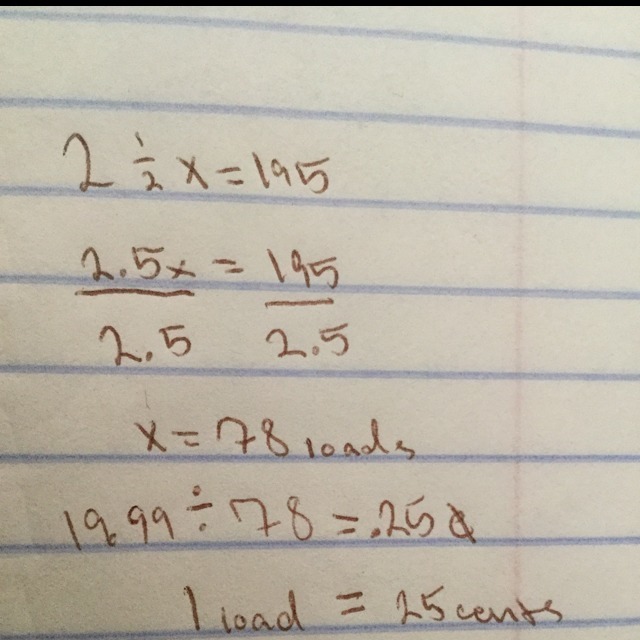 2 1/2 x = 195
2.5x = 195
2.5 2.5
x = 78 loads
19.99 ÷ 78 = .25 ¢
1 load = 25 cents